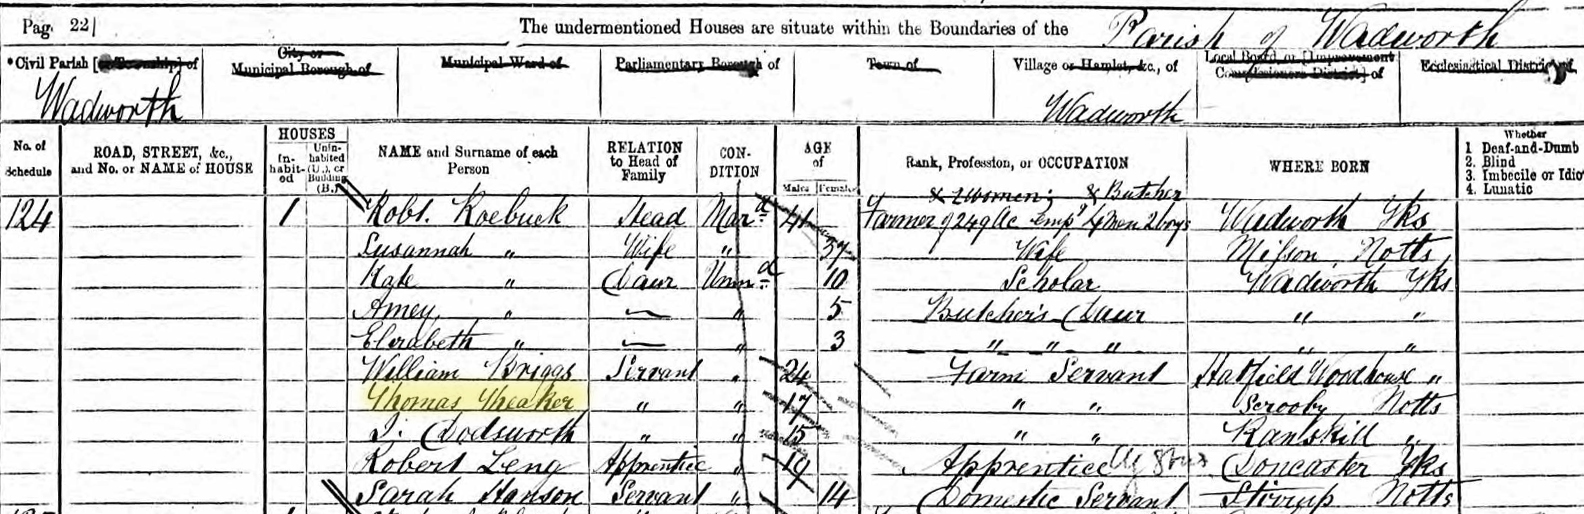 Page 22] The undermentioned Houses are situate within the Boundaries of the Parish of Wadworth
*Civil Parish [or Township] of City or Municipal Borough of Municipal Ward of Parliamentary Borough of Town of Village or Hamlet, &c., of Local Board, or [Improvement Commissioners District] of Ecclesiastical District of
Wadworth Wadworth
No. of Schedule ROAD, STREET, &c., and No. or NAME of HOUSE HOUSES In-habit-ed Unin-habited (U.), or Building (B.) NAME and Surname of each Person RELATION to Head of Family CON-DITION AGE of Males Females Rank, Profession, or OCCUPATION WHERE BORN Whether 1 Deaf-and-Dumb 2. Blind 3. Imbecile or Idio 4. Lunatic
& 2 women; & Butcher
124 1 Robt. Roebuck Head Mard 41 Farmer of 249 Ac emp 4 men 2 boys Wadworth Yks
Susannah " Wife " 37 Wife Misson Notts
Kate " Daur Unmd 10 Scholar Wadworth Yks
Amey " — " 5 Butcher's Daur " "
Elizabeth " — " 3 " " " " "
William Briggs Servant " 24 Farm Servant Hatfield Woodhouse "
Thomas Theaker " " 17 " " Scrooby Notts
J: Dodsworth " " 15 " " Ranskill "
Robert Leng Apprentice " 19 Apprentice Doncaster Yks
Sarah Hanson Servant " 14 Domestic Servant Stirrup Notts